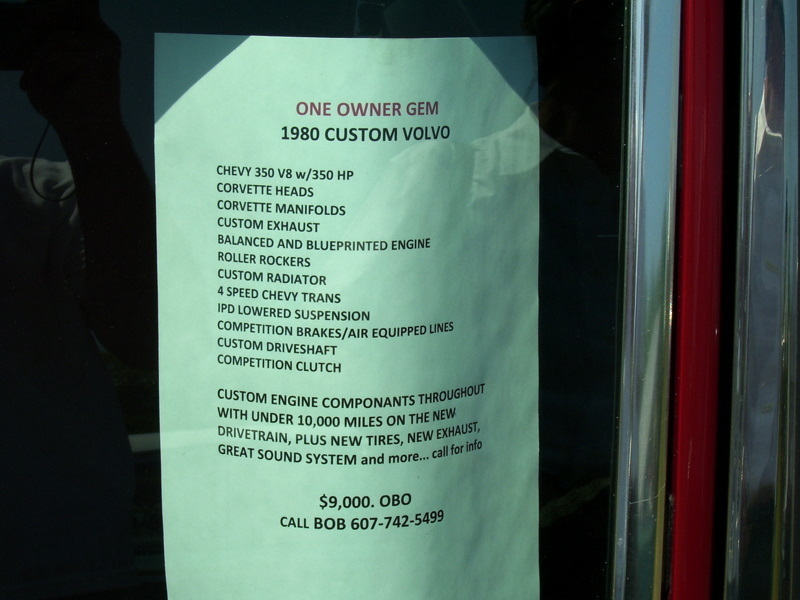 ONE OWNER GEM
1980 CUSTOM VOLVO
CHEVY 350 V8 w/350 HP
CORVETTE HEADS
CORVETTE MANIFOLDS
CUSTOM EXHAUST
BALANCED AND BLUEPRINTED ENGINE
ROLLER ROCKERS
CUSTOM RADIATOR
4 SPEED CHEVY TRANS
IPD LOWERED SUSPENSION
COMPETITION BRAKES/AIR EQUIPPED LINES
CUSTOM DRIVESHAFT
COMPETITION CLUTCH
CUSTOM ENGINE COMPONANTS THROUGHOUT
WITH UNDER 10,000 MILES ON THE NEW
DRIVETRAIN, PLUS NEW TIRES, NEW EXHAUST,
GREAT SOUND SYSTEM and more... call for info
$9,000. OBO
CALL BOB 607-742-5499